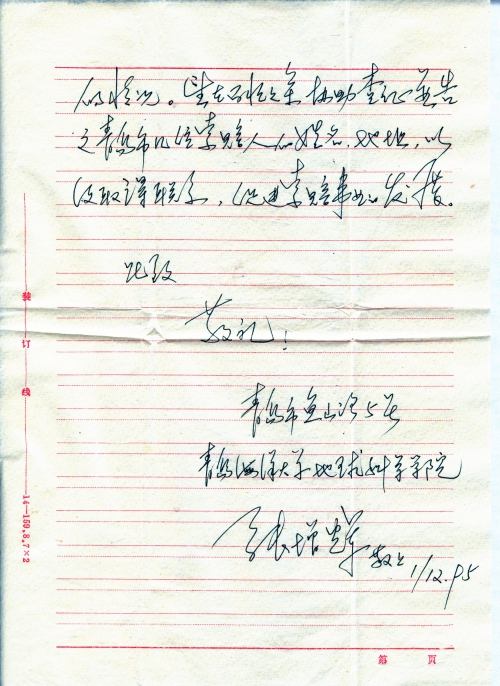 的情况。望在百忙之余协助查证并告
之青岛市几位索赔人的姓名、地址，以
便取得联系，促进索赔事业发展。
此致
敬礼！
青岛市鱼山路5号
青岛海洋大学地球科学学院
张增 敬上 1/12.95
装订线
14—159.8.7×2
第 页